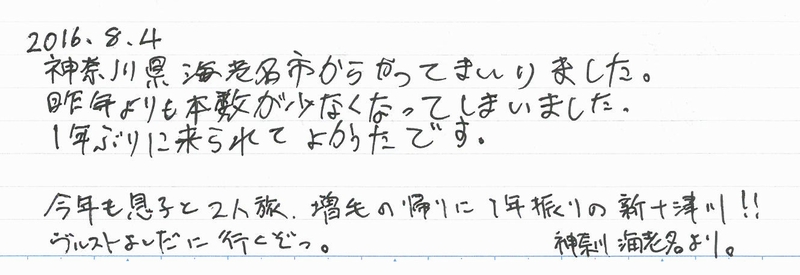 2016.8.4
神奈川県海老名市からやってまいりました。
昨年よりも本数が少なくなってしまいました。
1年ぶりに来られてよかったです。
今年も息子と2人旅、増毛の帰りに1年振りの新十津川!!
ヴルストよしだに行くぞっ。
神奈川 海老名より。